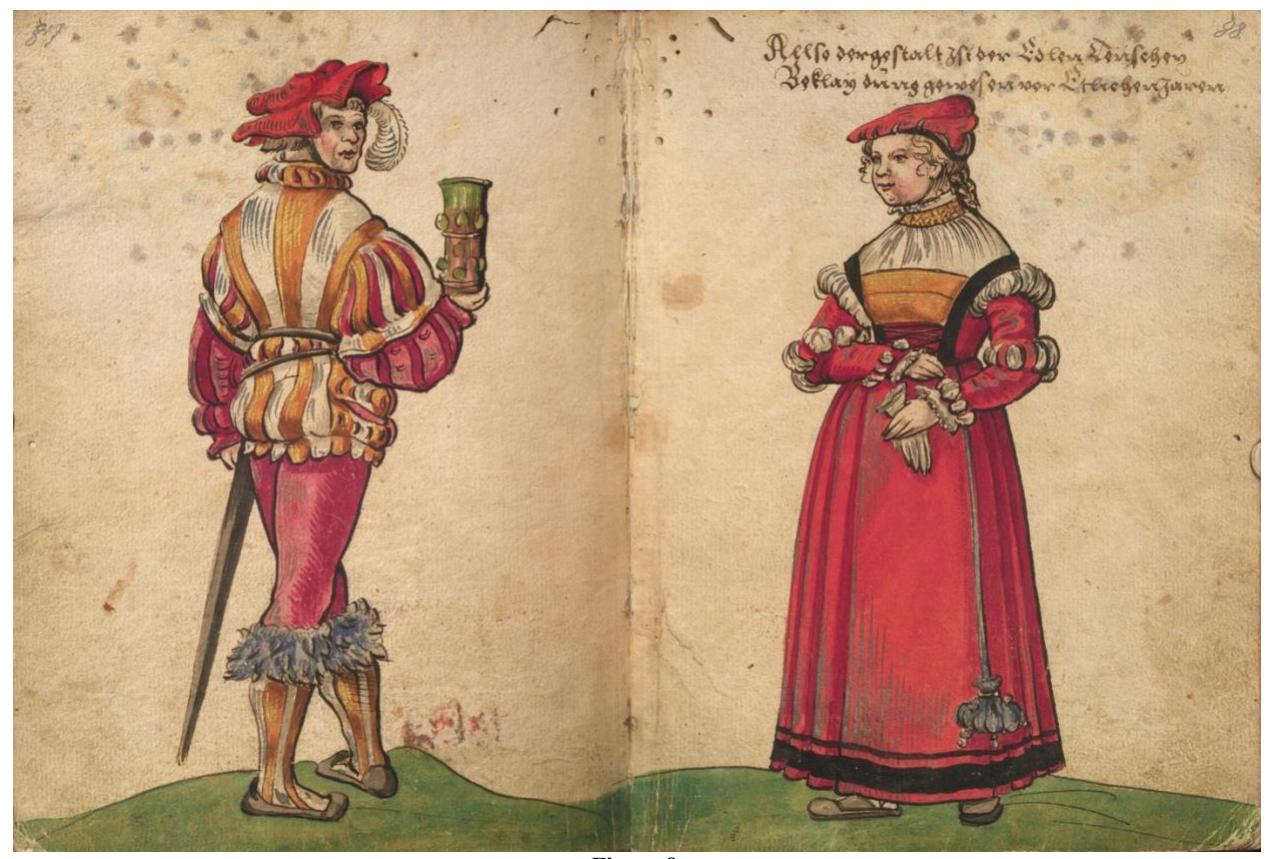 87
88
Allso dergestalt Ist der Edlen Teutschen
Beklaydung gewesen vor Etlichen Jaren